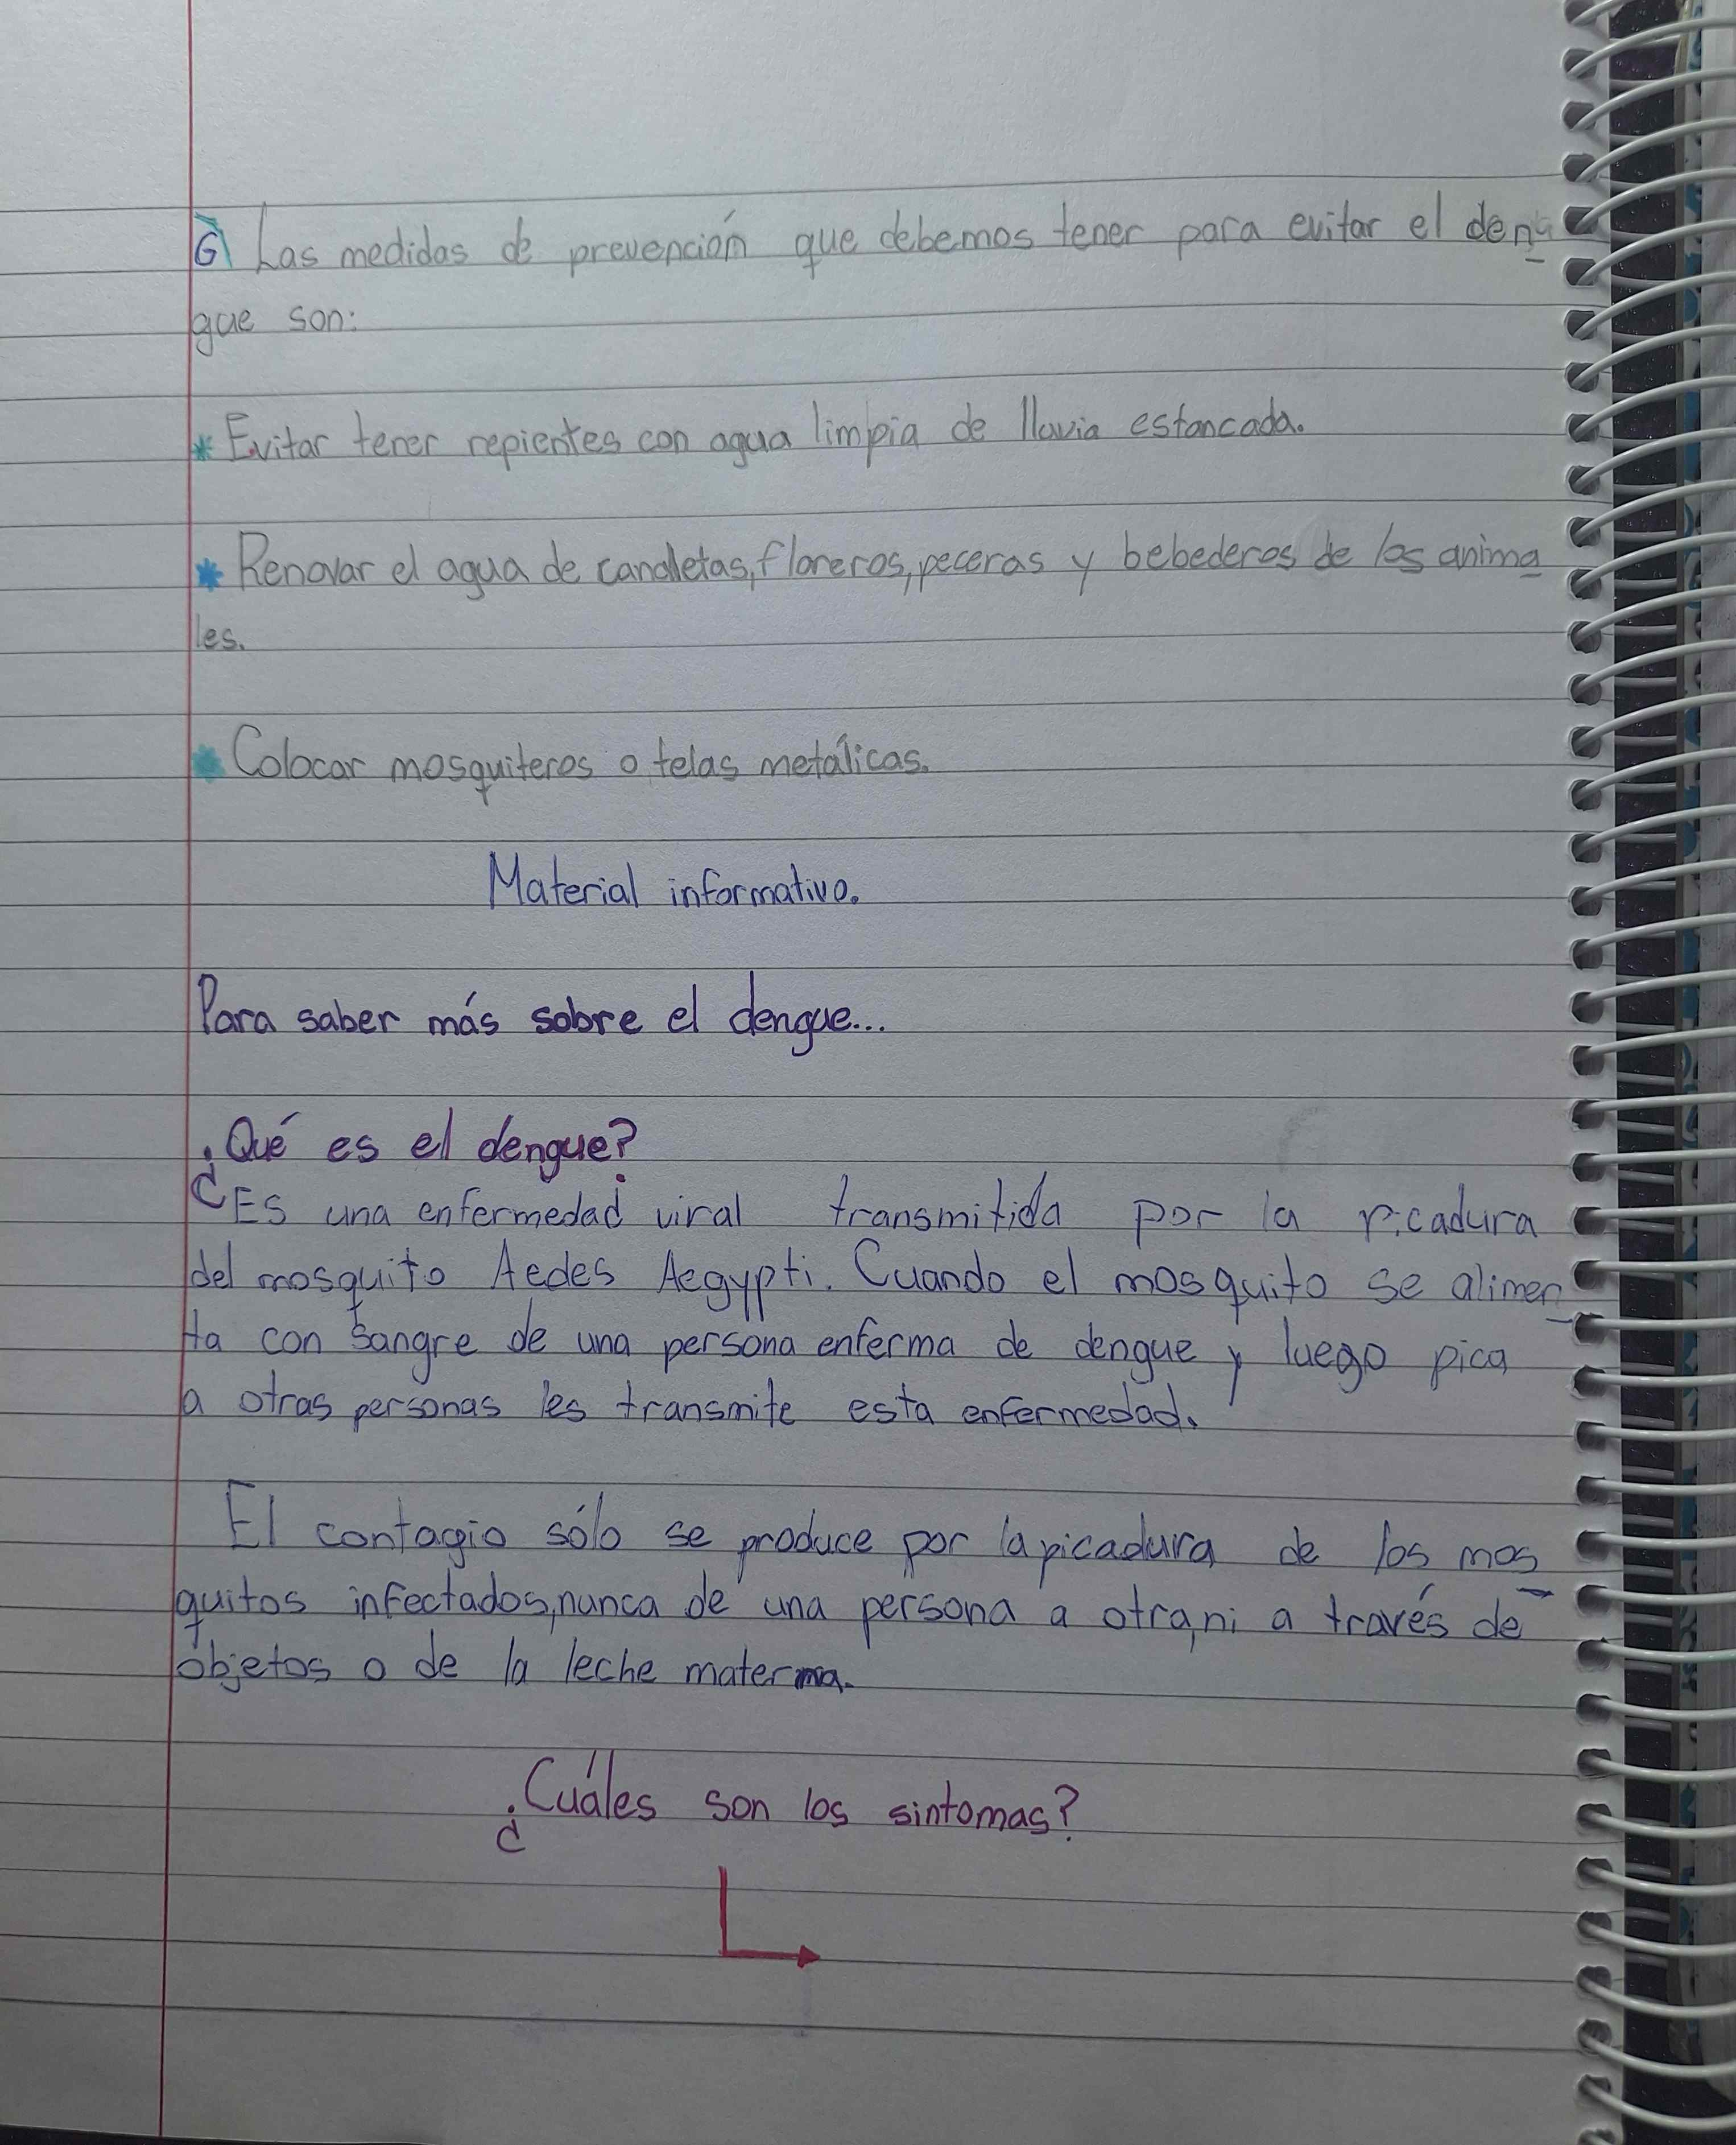 6) Las medidas de prevención que debemos tener para evitar el den
gue son:
* Evitar tener repientes con agua limpia de lluvia estancada.
* Renovar el agua de canaletas, floreros, peceras y bebederos de los anima
les.
* Colocar mosquiteros o telas metálicas.
Material informativo.
Para saber más sobre el dengue...
¿Qué es el dengue?
Es una enfermedad viral transmitida por la picadura
del mosquito Aedes Aegypti. Cuando el mosquito se alimen
ta con sangre de una persona enferma de dengue y luego pica
a otras personas les transmite esta enfermedad.
El contagio sólo se produce por la picadura de los mos
quitos infectados, nunca de una persona a otra, ni a través de
objetos o de la leche materna.
¿Cuáles son los sintomas?